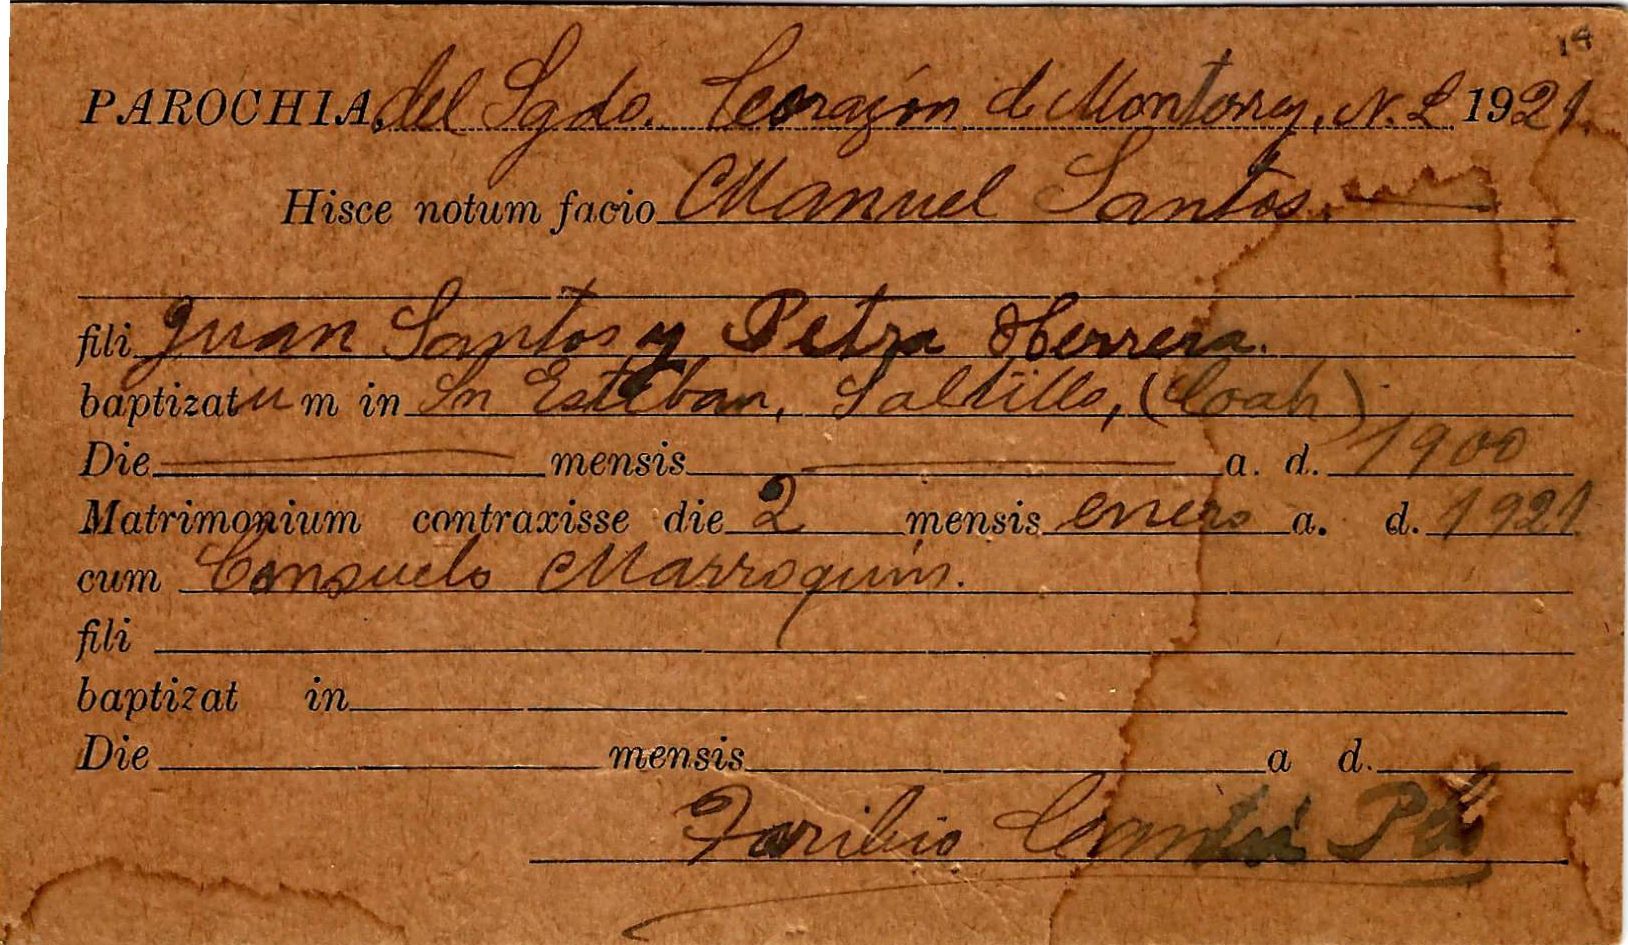 14
PAROCHIA, del Sgdo. Corazón de Monterrey, N. L 1921.
Hisce notum facio Manuel Santos.
fili Juan Santos y Petra Herrera.
baptizatum in Sn Esteban, Saltillo, (Coah)
Die mensis a. d. 1900
Matrimonium contraxisse die 2 mensis enero a. d. 1921
cum Consuelo Marroquín.
fili
baptizat in
Die mensis a d.
Toribio Cantú Pbo